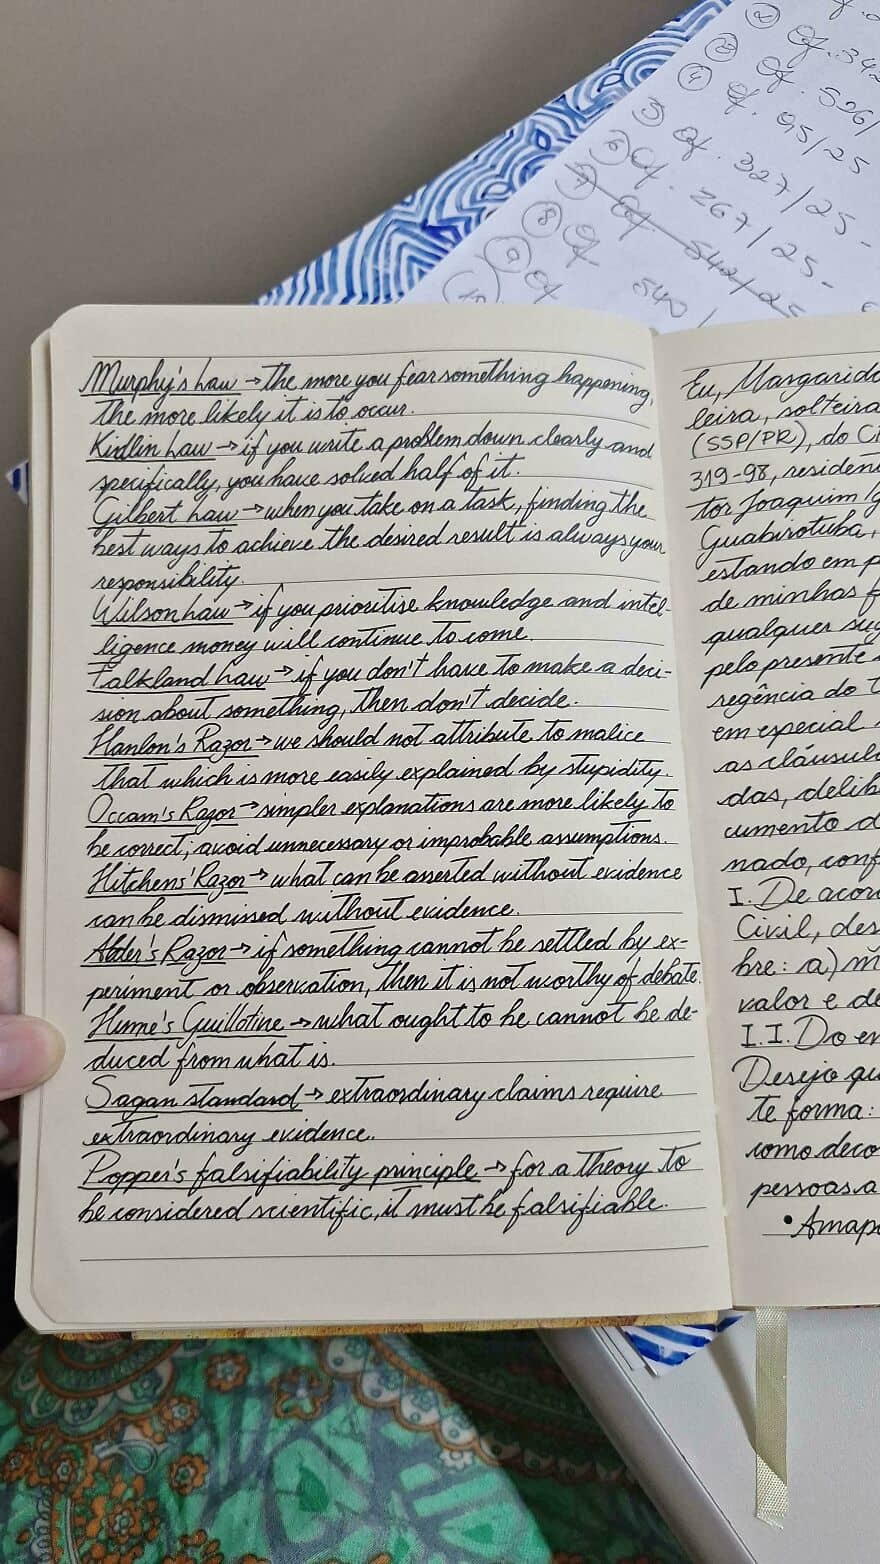 ② Of. 342
③ Of. 526/
④ Of. 95/25
⑤ Of. 327/25-
⑥ Of. 267/25-
⑦ Of 542/25
⑧ Of 540/
⑨ Of
⑩
Murphy's Law → the more you fear something happening,
the more likely it is to occur.
Kidlin Law → if you write a problem down clearly and
specifically, you have solved half of it.
Gilbert Law → when you take on a task, finding the
best ways to achieve the desired result is always your
responsibility.
Wilson Law → if you prioritise knowledge and intel-
ligence money will continue to come.
Falkland Law → if you don't have to make a deci-
sion about something, then don't decide.
Hanlon's Razor → we should not attribute to malice
that which is more easily explained by stupidity.
Occam's Razor → simpler explanations are more likely to
be correct; avoid unnecessary or improbable assumptions.
Hitchens' Razor → what can be asserted without evidence
can be dismissed without evidence.
Alder's Razor → if something cannot be settled by ex-
periment or observation, then it is not worthy of debate.
Hume's Guillotine → what ought to be cannot be de-
duced from what is.
Sagan standard → extraordinary claims require
extraordinary evidence.
Popper's falsifiability principle → for a theory to
be considered scientific, it must be falsifiable.
Eu, Margarida
leira, solteira
(SSP/PR), do C
319-98, residen
tor Joaquim
Guabirotuba,
estando em p
de minhas f
qualquer sug
pelo presente
regência do t
em especial
as cláusul
das, delib
cumento d
nado, conf
I. De acor
Civil, des
bre: a) m
valor e de
I.I. Do en
Desejo qu
te forma:
como deco
pessoas a
• Amap